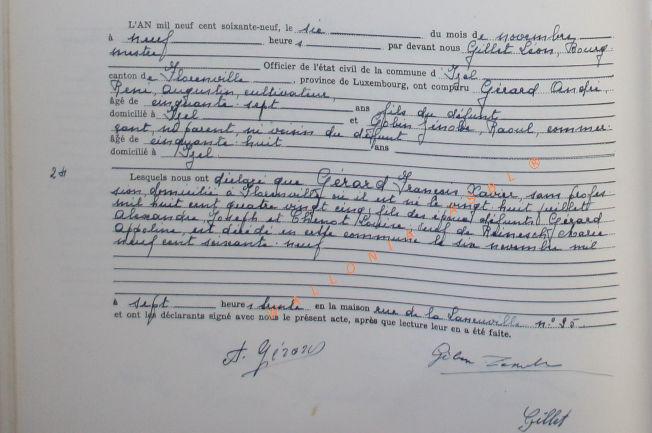 L'AN mil neuf cent soixante-neuf, le six du mois de novembre
à neuf heure s par devant nous Gillet Léon, Bourg
mestre
Officier de l'état civil de la commune d'Izel
canton de Florenville, province de Luxembourg, ont comparu Gérard André,
René, Augustin, cultivateur,
âgé de cinquante-sept ans fils du défunt
domicilié à Izel et Gobin Zénobe, Raoul, commer-
çant, no parent, ni voisin du défunt
âgé de cinquante-huit ans
domicilié à Izel
2 Lesquels nous ont déclaré que Gérard François Xavier, sans profes
sion, domicilié à Florenville où il est né le vingt huit juillet
mil huit cent quatre vingt cinq, fils des époux défunts Gérard
Alexandre Joseph et Thenot, veuf de Reinesch Marie
Appoline, est décédé en cette commune le six novembre mil
neuf cent soixante-neuf
à sept heure s trente en la maison rue de la Laneuville n° 95
et ont les déclarants signé avec nous le présent acte, après que lecture leur en a été faite.
A. Gérard
Gobin Zénobe
Gillet
WALLONIE ASBL ®